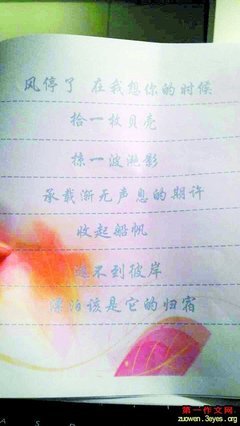 风停了 在我想你的时候
拾一枚贝壳
掠一波潋影
承载渐无声息的期许
收起船帆
不到彼岸
漂泊该是它的归宿
第一作文网
zuowen.3eyes.org